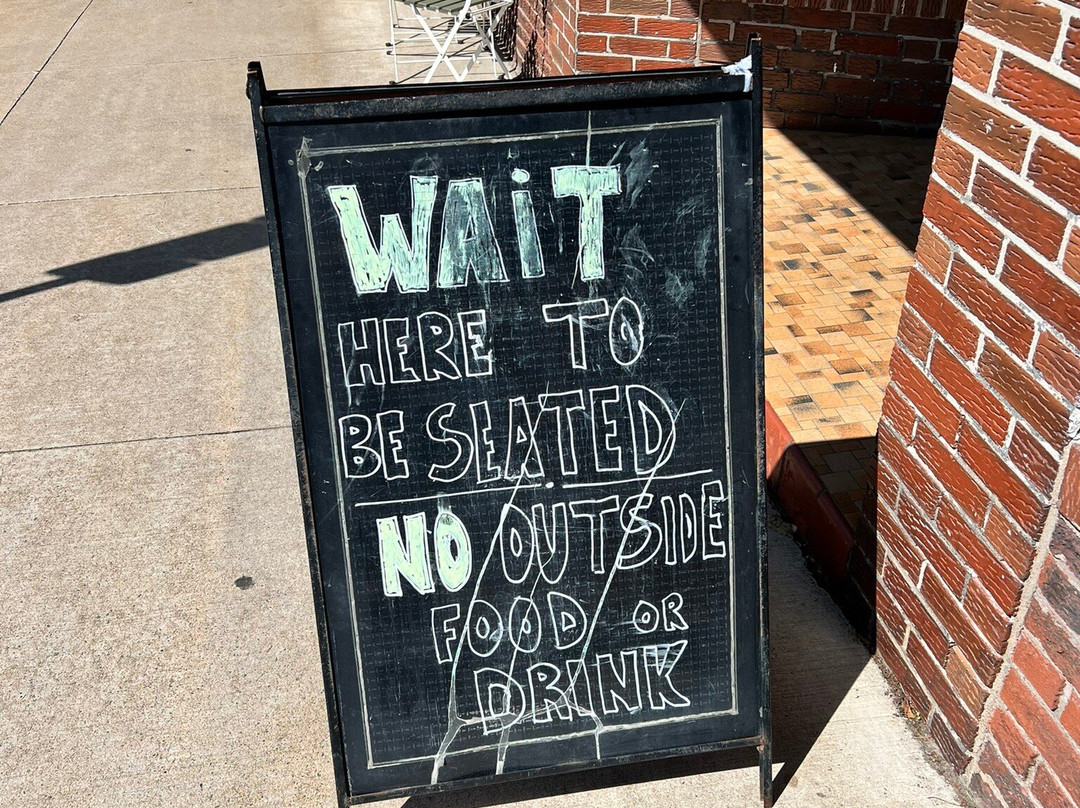 WAiT
HERE TO
BE SEATED
NO OUTSIDE
FOOD OR
DRINK